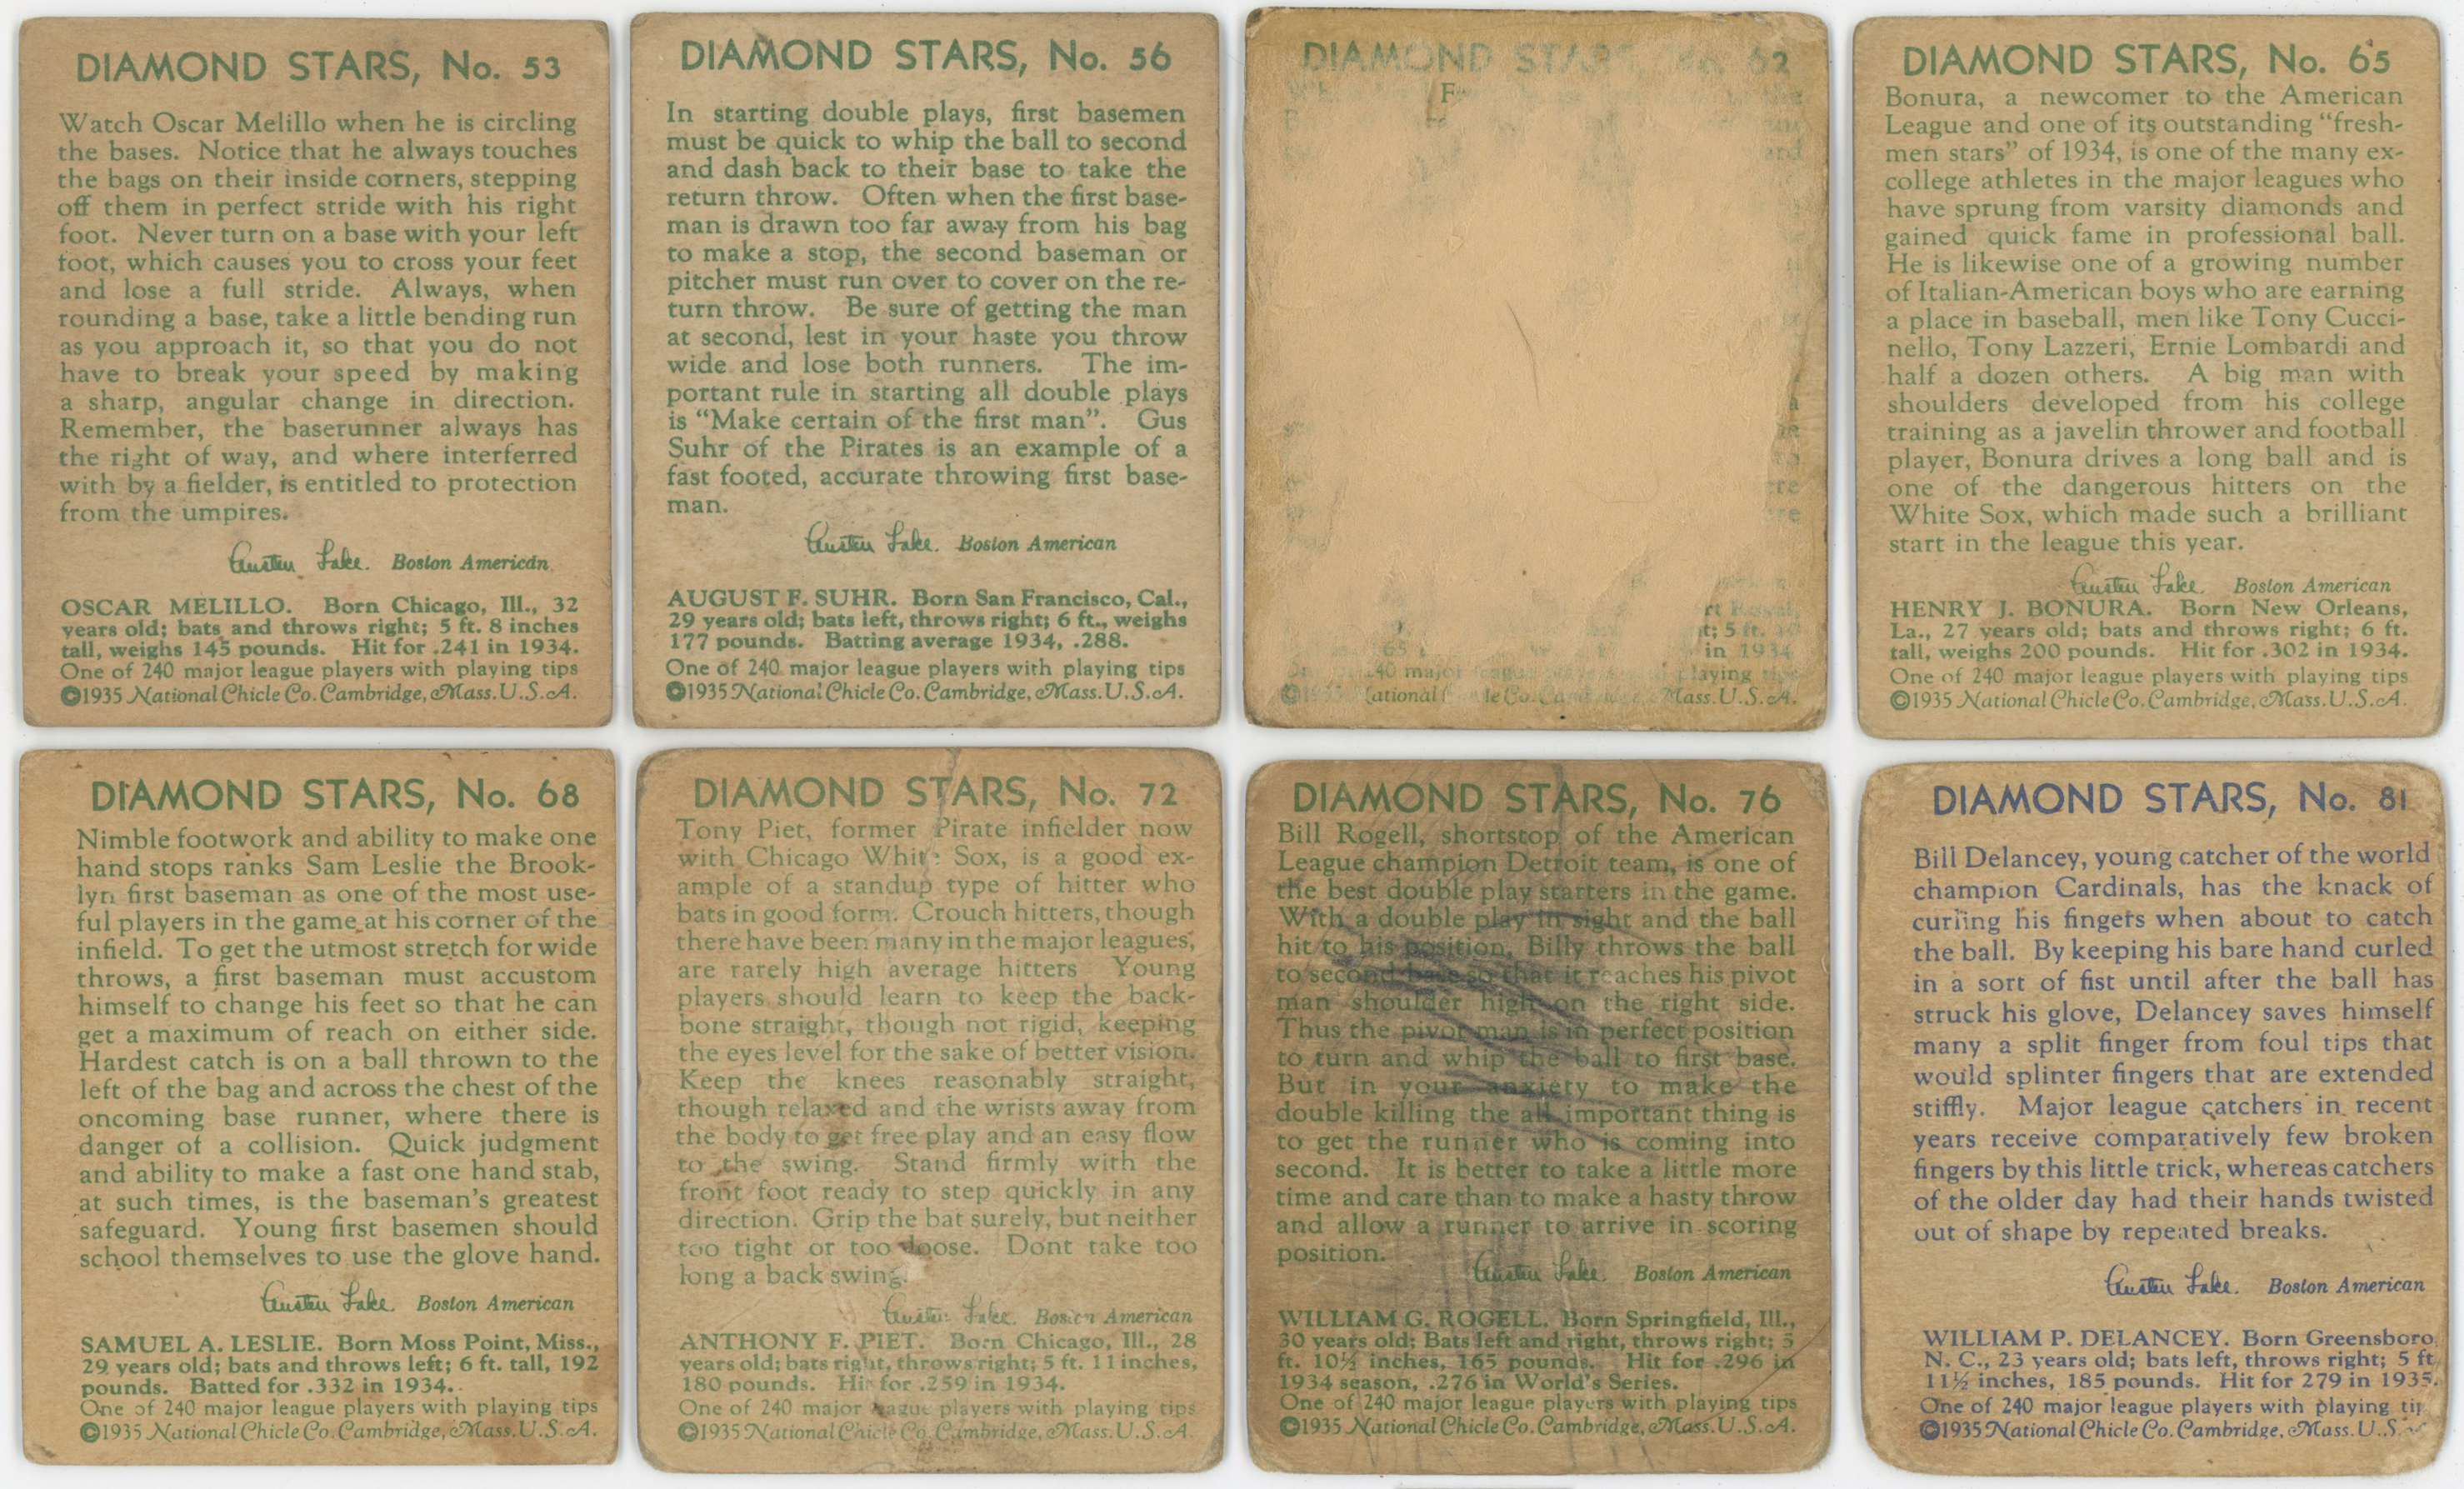 DIAMOND STARS, No. 53
Watch Oscar Melillo when he is circling
the bases. Notice that he always touches
the bags on their inside corners, stepping
off them in perfect stride with his right
foot. Never turn on a base with your left
foot, which causes you to cross your feet
and lose a full stride. Always, when
rounding a base, take a little bending run
as you approach it, so that you do not
have to break your speed by making
a sharp, angular change in direction.
Remember, the baserunner always has
the right of way, and where interferred
with by a fielder, is entitled to protection
from the umpires.
Austen Lake. Boston American
OSCAR MELILLO. Born Chicago, Ill., 32
years old; bats and throws right; 5 ft. 8 inches
tall, weighs 145 pounds. Hit for .241 in 1934.
One of 240 major league players with playing tips
©1935 National Chicle Co. Cambridge, Mass. U.S.A.
DIAMOND STARS, No. 56
In starting double plays, first basemen
must be quick to whip the ball to second
and dash back to their base to take the
return throw. Often when the first base-
man is drawn too far away from his bag
to make a stop, the second baseman or
pitcher must run over to cover on the re-
turn throw. Be sure of getting the man
at second, lest in your haste you throw
wide and lose both runners. The im-
portant rule in starting all double plays
is “Make certain of the first man”. Gus
Suhr of the Pirates is an example of a
fast footed, accurate throwing first base-
man.
Austen Lake. Boston American
AUGUST F. SUHR. Born San Francisco, Cal.,
29 years old; bats left, throws right; 6 ft., weighs
177 pounds. Batting average 1934, .288.
One of 240 major league players with playing tips
©1935 National Chicle Co. Cambridge, Mass. U.S.A.
DIAMOND STARS, No. 62
and
a
t; 5 ft.
in 1934
major league players playing tips
©1935 National Chicle Co. Cambridge, Mass. U.S.A.
DIAMOND STARS, No. 65
Bonura, a newcomer to the American
League and one of its outstanding “fresh-
men stars” of 1934, is one of the many ex-
college athletes in the major leagues who
have sprung from varsity diamonds and
gained quick fame in professional ball.
He is likewise one of a growing number
of Italian-American boys who are earning
a place in baseball, men like Tony Cucci-
nello, Tony Lazzeri, Ernie Lombardi and
half a dozen others. A big man with
shoulders developed from his college
training as a javelin thrower and football
player, Bonura drives a long ball and is
one of the dangerous hitters on the
White Sox, which made such a brilliant
start in the league this year.
Austen Lake. Boston American
HENRY J. BONURA. Born New Orleans,
La., 27 years old; bats and throws right; 6 ft.
tall, weighs 200 pounds. Hit for .302 in 1934.
One of 240 major league players with playing tips
©1935 National Chicle Co. Cambridge, Mass. U.S.A.
DIAMOND STARS, No. 68
Nimble footwork and ability to make one
hand stops ranks Sam Leslie the Brook-
lyn first baseman as one of the most use-
ful players in the game at his corner of the
infield. To get the utmost stretch for wide
throws, a first baseman must accustom
himself to change his feet so that he can
get a maximum of reach on either side.
Hardest catch is on a ball thrown to the
left of the bag and across the chest of the
oncoming base runner, where there is
danger of a collision. Quick judgment
and ability to make a fast one hand stab,
at such times, is the baseman's greatest
safeguard. Young first basemen should
school themselves to use the glove hand.
Austen Lake. Boston American
SAMUEL A. LESLIE. Born Moss Point, Miss.,
29 years old; bats and throws left; 6 ft. tall, 192
pounds. Batted for .332 in 1934.
One of 240 major league players with playing tips
©1935 National Chicle Co. Cambridge, Mass. U.S.A.
DIAMOND STARS, No. 72
Tony Piet, former Pirate infielder now
with Chicago White Sox, is a good ex-
ample of a standup type of hitter who
bats in good form. Crouch hitters, though
there have been many in the major leagues,
are rarely high average hitters Young
players should learn to keep the back-
bone straight, though not rigid, keeping
the eyes level for the sake of better vision.
Keep the knees reasonably straight,
though relaxed and the wrists away from
the body to get free play and an easy flow
to the swing. Stand firmly with the
front foot ready to step quickly in any
direction. Grip the bat surely, but neither
too tight or too loose. Dont take too
long a back swing.
Austen Lake. Boston American
ANTHONY F. PIET. Born Chicago, Ill., 28
years old; bats right, throws right; 5 ft. 11 inches,
180 pounds. Hit for .259 in 1934.
One of 240 major league players with playing tips
©1935 National Chicle Co. Cambridge, Mass. U.S.A.
DIAMOND STARS, No. 76
Bill Rogell, shortstop of the American
League champion Detroit team, is one of
the best double play starters in the game.
With a double play in sight and the ball
hit to his position, Billy throws the ball
to second base so that it reaches his pivot
man shoulder high on the right side.
Thus the pivot man is in perfect position
to turn and whip the ball to first base.
But in your anxiety to make the
double killing the all important thing is
to get the runner who is coming into
second. It is better to take a little more
time and care than to make a hasty throw
and allow a runner to arrive in scoring
position.
Austen Lake. Boston American
WILLIAM G. ROGELL. Born Springfield, Ill.,
30 years old; Bats left and right, throws right; 5
ft. 10½ inches, 165 pounds. Hit for .296 in
1934 season, .276 in World's Series.
One of 240 major league players with playing tips
©1935 National Chicle Co. Cambridge, Mass. U.S.A.
DIAMOND STARS, No. 81
Bill Delancey, young catcher of the world
champion Cardinals, has the knack of
curling his fingers when about to catch
the ball. By keeping his bare hand curled
in a sort of fist until after the ball has
struck his glove, Delancey saves himself
many a split finger from foul tips that
would splinter fingers that are extended
stiffly. Major league catchers in recent
years receive comparatively few broken
fingers by this little trick, whereas catchers
of the older day had their hands twisted
out of shape by repeated breaks.
Austen Lake. Boston American
WILLIAM P. DELANCEY. Born Greensboro,
N. C., 23 years old; bats left, throws right; 5 ft
11½ inches, 185 pounds. Hit for 279 in 1935.
One of 240 major league players with playing
©1935 National Chicle Co. Cambridge, Mass. U.S.